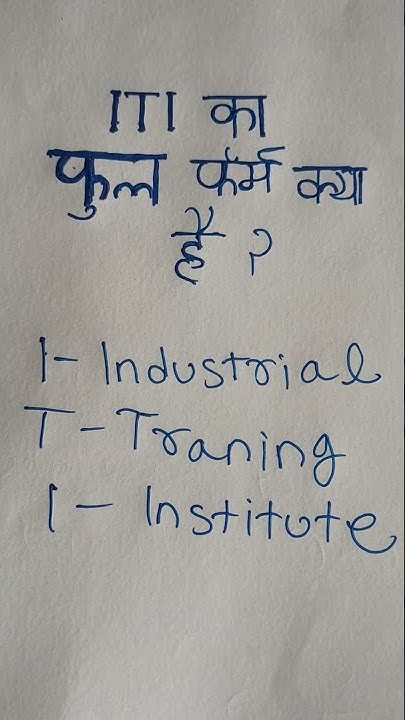 ITI का
फुल फॉर्म क्या
है ?
I- Industrial
T - Traning
I - Institute